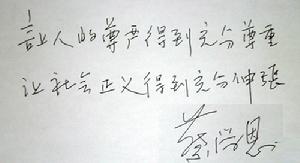 让人的尊严得到充分尊重
让社会正义得到充分伸张
蔡尚恩